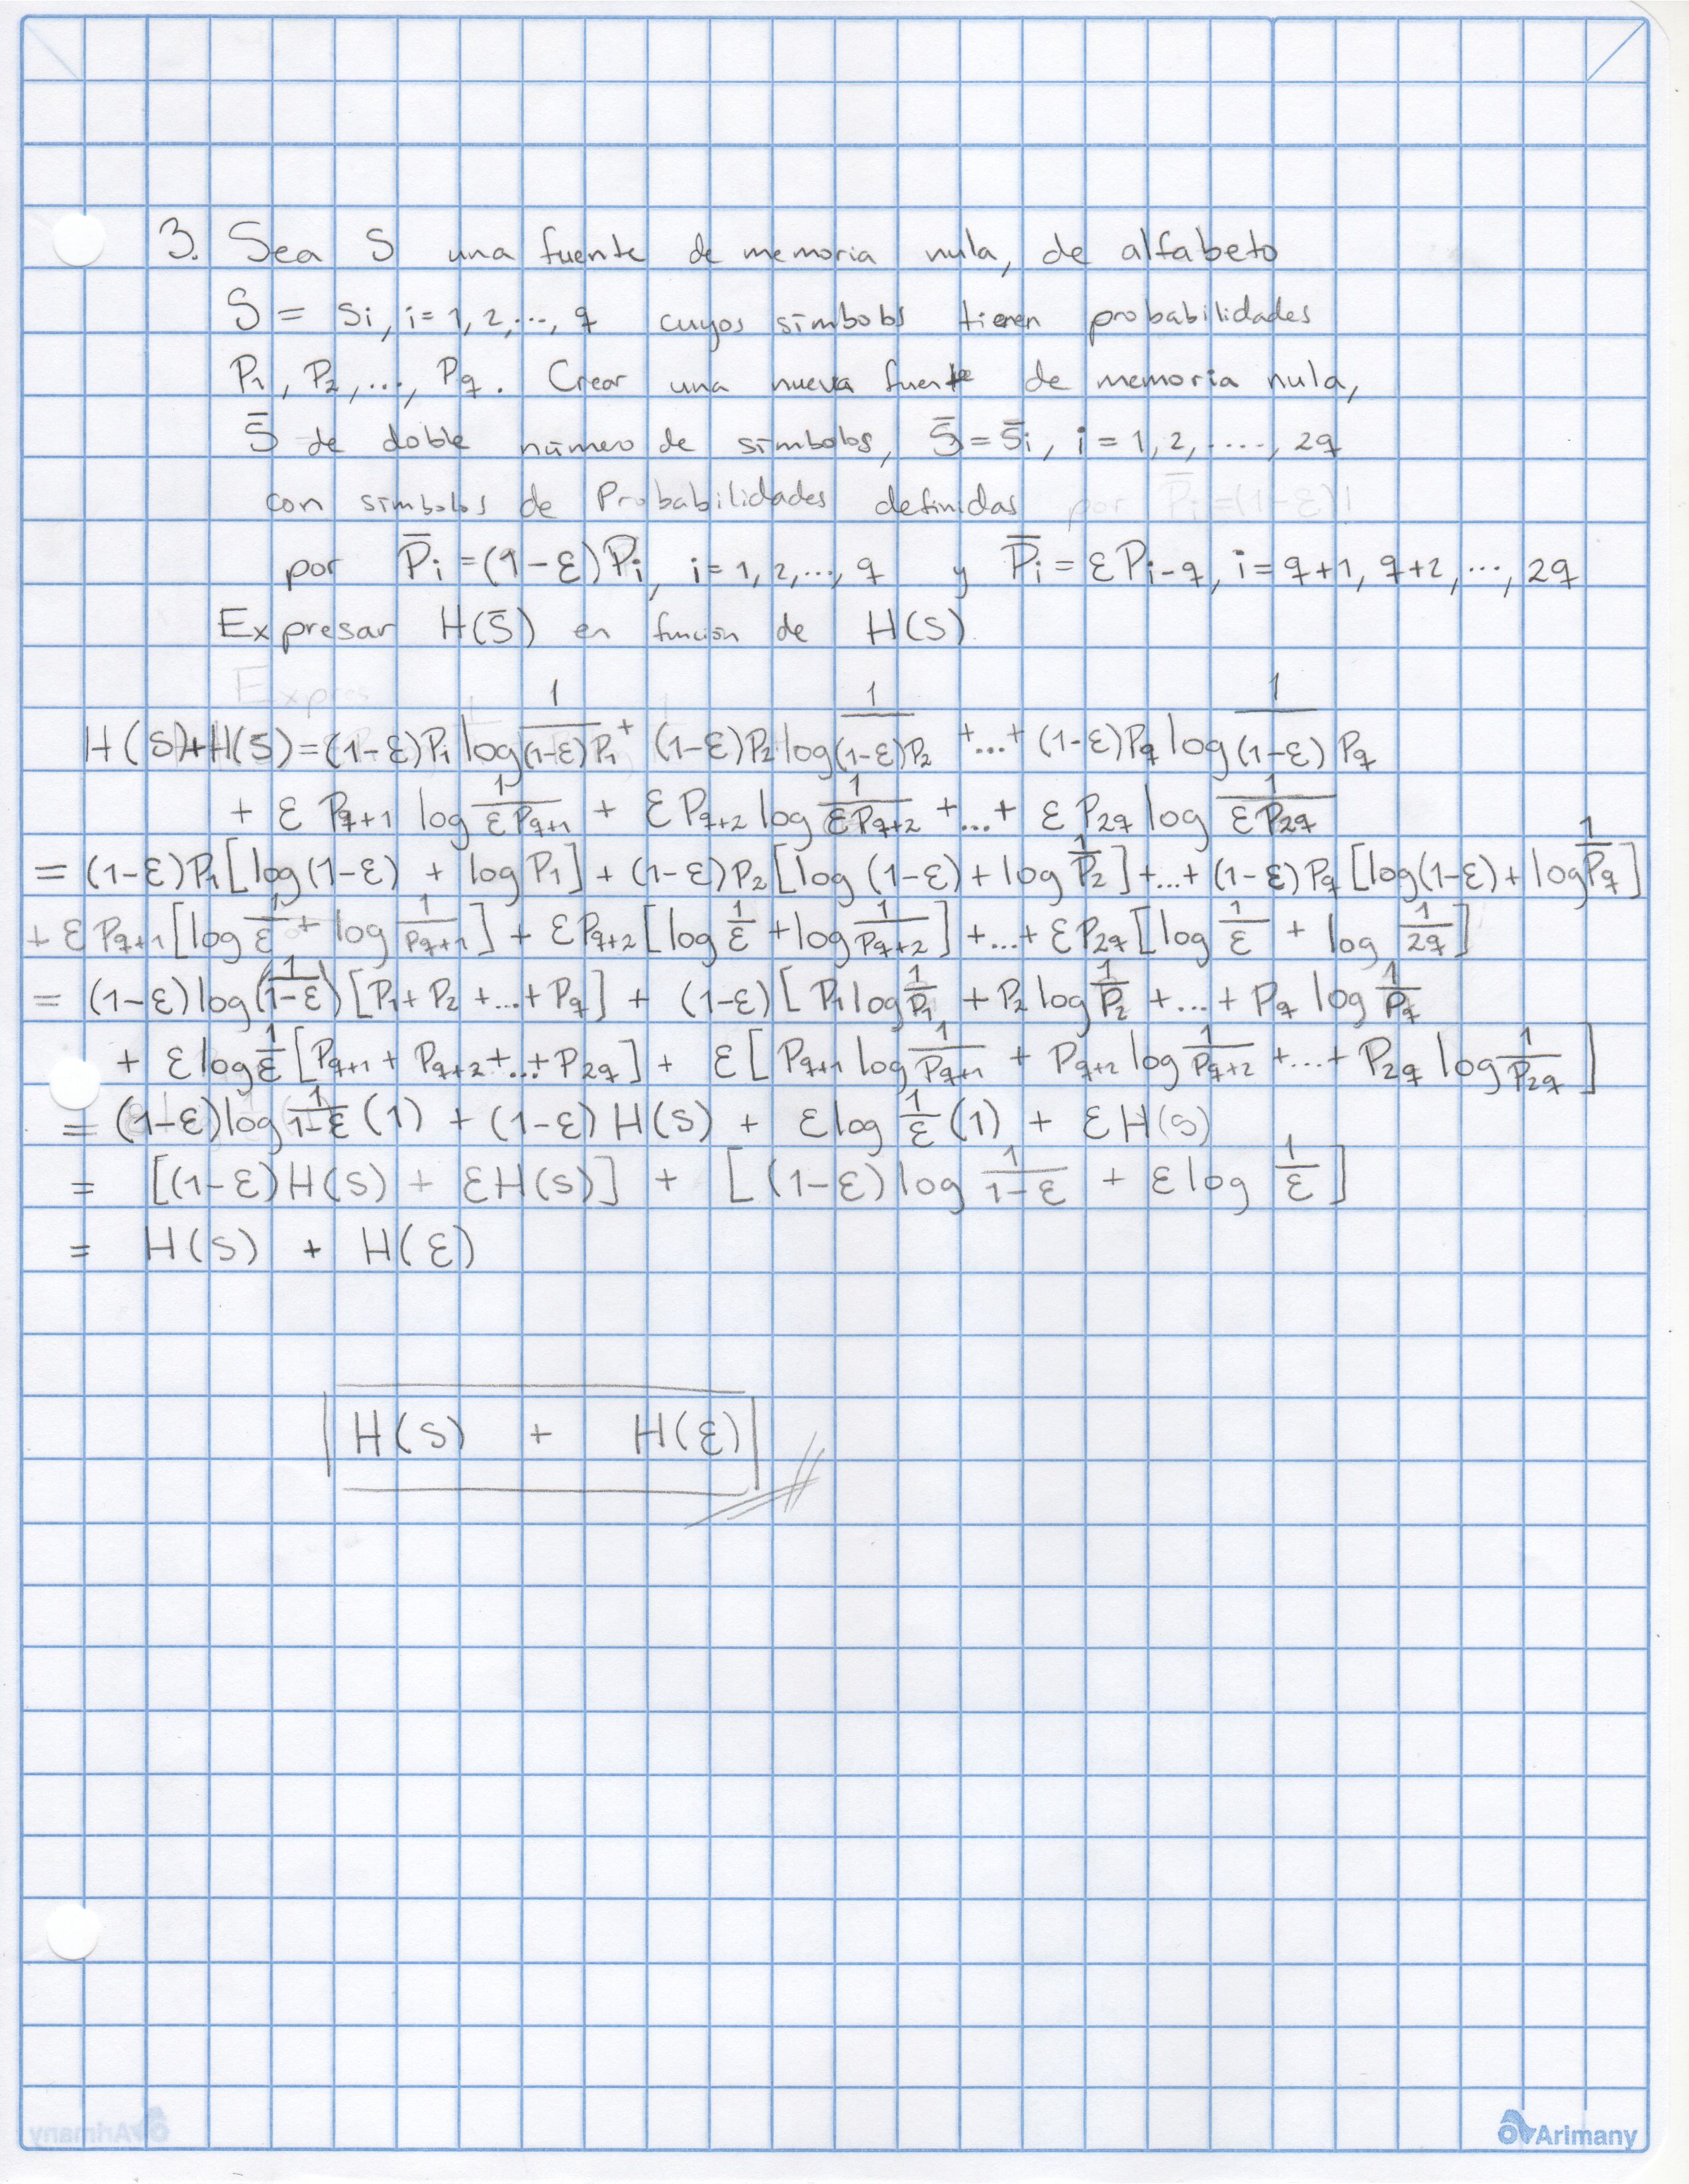 3. Sea S una fuente de memoria nula, de alfabeto
S = Si, i = 1, 2, ..., q cuyos símbolos tienen probabilidades
P₁, P₂, ..., Pq. Crear una nueva fuente de memoria nula,
S̄ de doble número de símbolos, S̄ = S̄i, i = 1, 2, ...., 2q
con símbolos de Probabilidades definidas por P̄i = (1-ε)
por P̄i = (1-ε)Pi, i = 1, 2, ..., q y P̄i = εPi-q, i = q+1, q+2, ..., 2q
Expresar H(S̄) en función de H(S)
Expres
H(S)+H(S̄) = (1-ε)P₁ log 1/(1-ε)P₁ + (1-ε)P₂ log 1/(1-ε)P₂ +...+ (1-ε)Pq log 1/(1-ε)Pq
+ ε Pq+1 log 1/εPq+1 + εPq+2 log 1/εPq+2 +...+ εP2q log 1/εP2q
= (1-ε)P₁[log(1-ε) + log P₁] + (1-ε)P₂[log (1-ε) + log 1/P₂] +...+ (1-ε)Pq [log(1-ε) + log 1/Pq]
+ εPq+1[log 1/ε + log 1/Pq+1] + εPq+2[log 1/ε + log 1/Pq+2] +...+ εP2q[log 1/ε + log 1/2q]
= (1-ε) log(1/1-ε) [P₁+P₂+...+Pq] + (1-ε)[P₁ log 1/P₁ + P₂ log 1/P₂ +...+ Pq log 1/Pq
+ ε log 1/ε [Pq+1 + Pq+2 +...+ P2q] + ε[Pq+1 log 1/Pq+1 + Pq+2 log 1/Pq+2 +...+ P2q log 1/P2q]
= (1-ε) log 1/1-ε (1) + (1-ε) H(S) + ε log 1/ε (1) + εH(S)
= [(1-ε)H(S) + εH(S)] + [(1-ε) log 1/1-ε + ε log 1/ε]
= H(S) + H(ε)
H(S) + H(ε)
Arimany